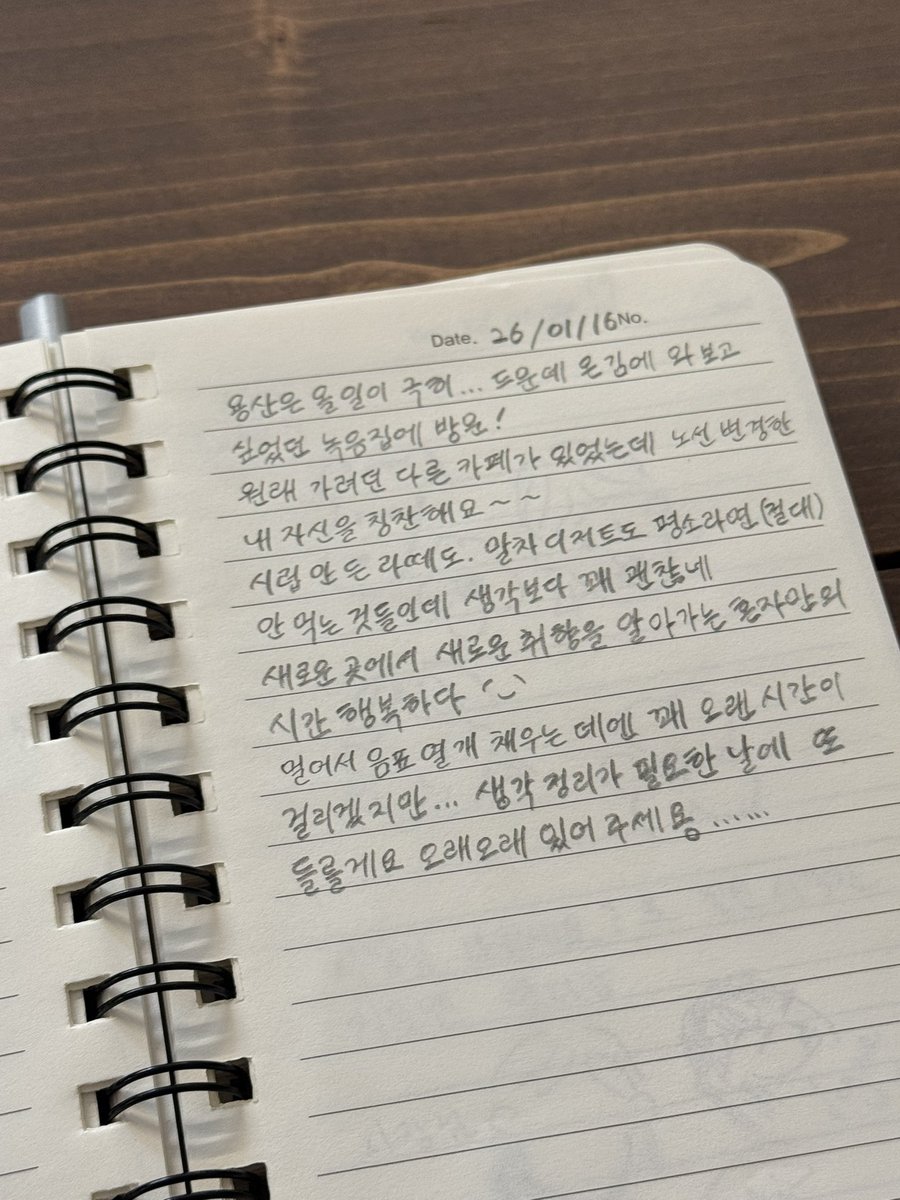 Date. 26/01/16 No.
용산은 올일이 극히... 드문데 온김에 와보고
싶었던 녹음집에 방문!
원래 가려던 다른 카페가 있었는데 노선 변경한
내 자신을 칭찬해요~~
시럽 안 든 라떼도. 말차 디저트도 평소라면 (절대)
안 먹는 것들인데 생각보다 꽤 괜찮네
새로운 곳에서 새로운 취향을 알아가는 혼자만의
시간 행복하다
멀어서 음표 열개 채우는 데엔 꽤 오랜 시간이
걸리겠지만... 생각 정리가 필요한 날에 또
들를게요 오래오래 있어 주세용......